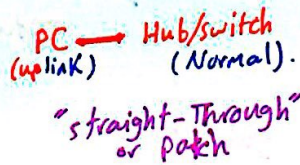 PC ⟷ Hub/switch
(uplink) (Normal).
"straight-Through"
or patch